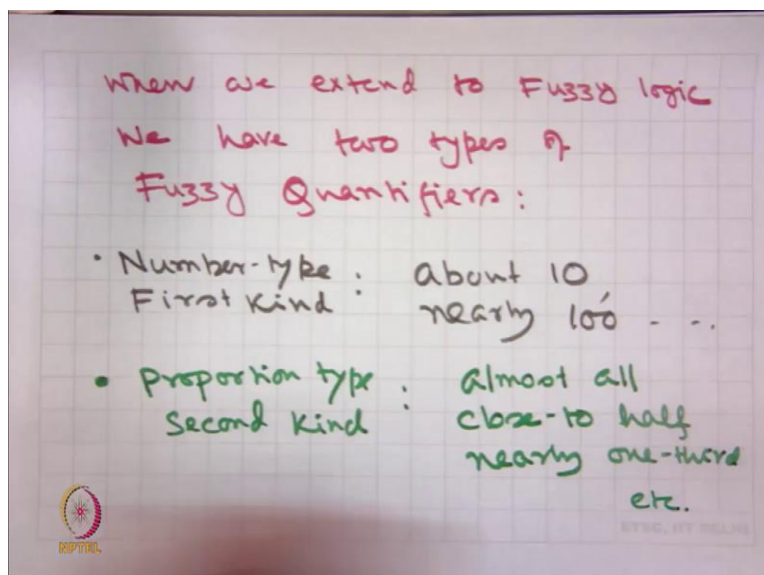 When we extend to Fuzzy logic
We have two types of
Fuzzy Quantifiers:
• Number-type : about 10,
First Kind nearly 100 - - -
• Proportion type : almost all
Second Kind close-to half
nearly one-third
etc.
NPTEL
ETSC, IIT DELHI